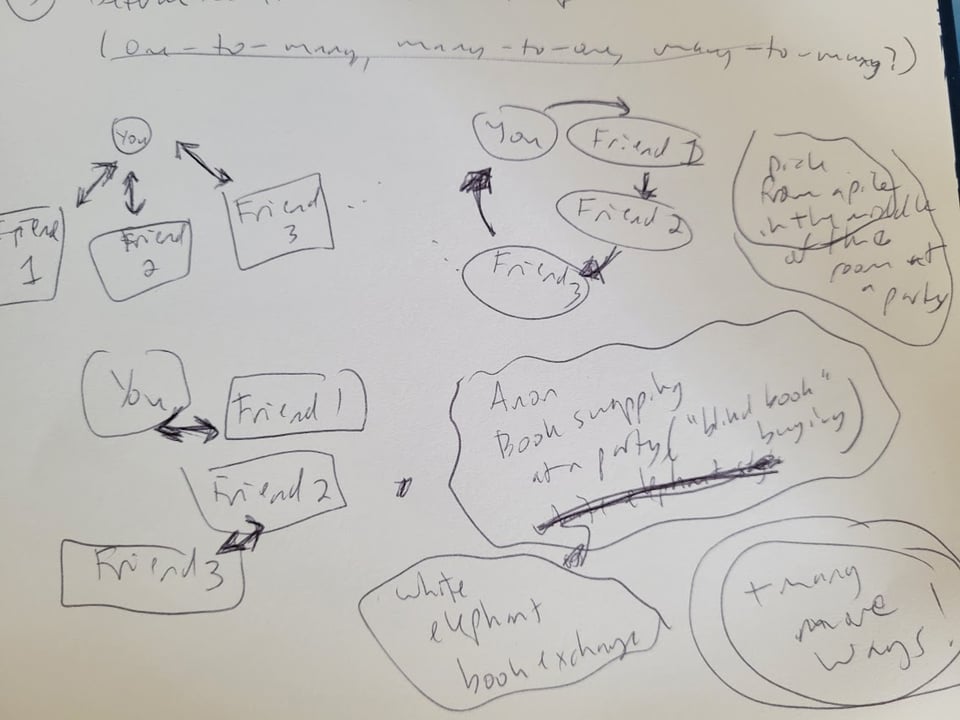 (one-to-many, many-to-one, many-to-many?)
You
Friend
1
Friend
2
Friend
3
You
Friend 1
Friend 2
Friend
3
pick
from a pile
in the middle
of the
room at
a party
You
Friend 1
Friend 2
Friend 3
Anon
Book swapping
at a party ("blind book"
buying)
white elephant
white
elephant
book exchange
+ many
more
ways!